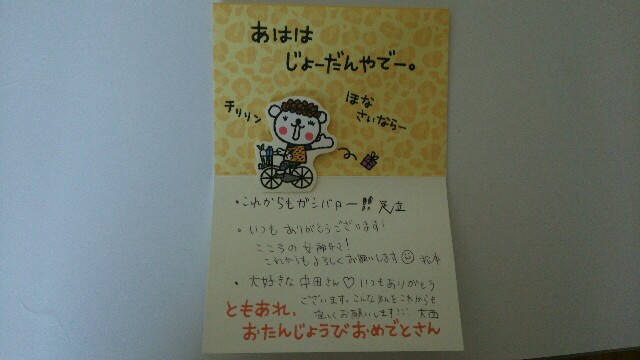 あははは
じょーだんやでー。
チリリン
ほな
さいならー
・これからもガンバロー!! 足立
・いつもありがとうございます!
こころの女神です!
これからもよろしくお願いします☺ 松本
・大好きな中田さん♡いつもありがとう
ございます。こんな私をこれからも
宜しくお願いします!!! 大西
ともあれ、
おたんじょうびおめでとさん